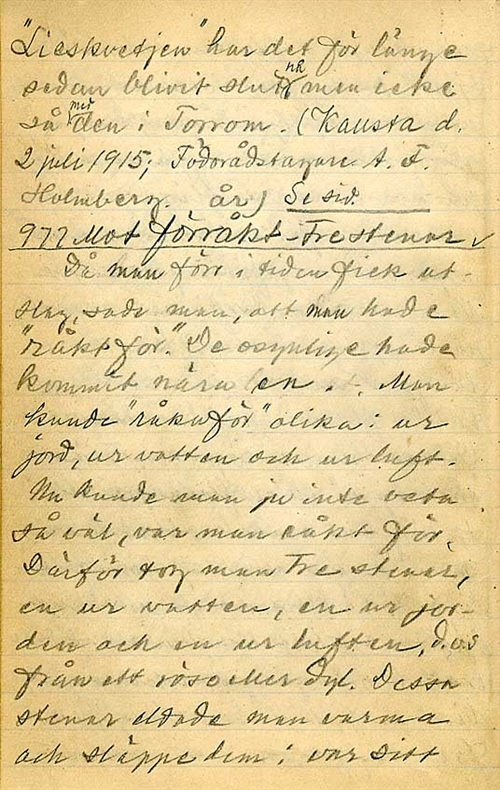 "Lieskvetjen" har det för länge
sedan blivit slut på men icke
så med den i Torrom. (Kausta d.
2 juli 1915; Födorådstagare A. F.
Holmberg. år) Se sid.
977 Mot förråkt - Tre stenar √
Då man förr i tiden fick ut-
slag, sade man, att man hade
"råkt för." De osynlige hade
kommit nära en. Man
kunde "råka för" olika: ur
jord, ur vatten och ur luft.
Nu kunde man ju inte veta
så väl, var man råkt för.
Därför tog man tre stenar,
en ur vatten, en ur jor-
den och en ur luften, d.v.s
från ett röso eller dyl. Dessa
stenar eldade man varma
och släppe dem i var sitt